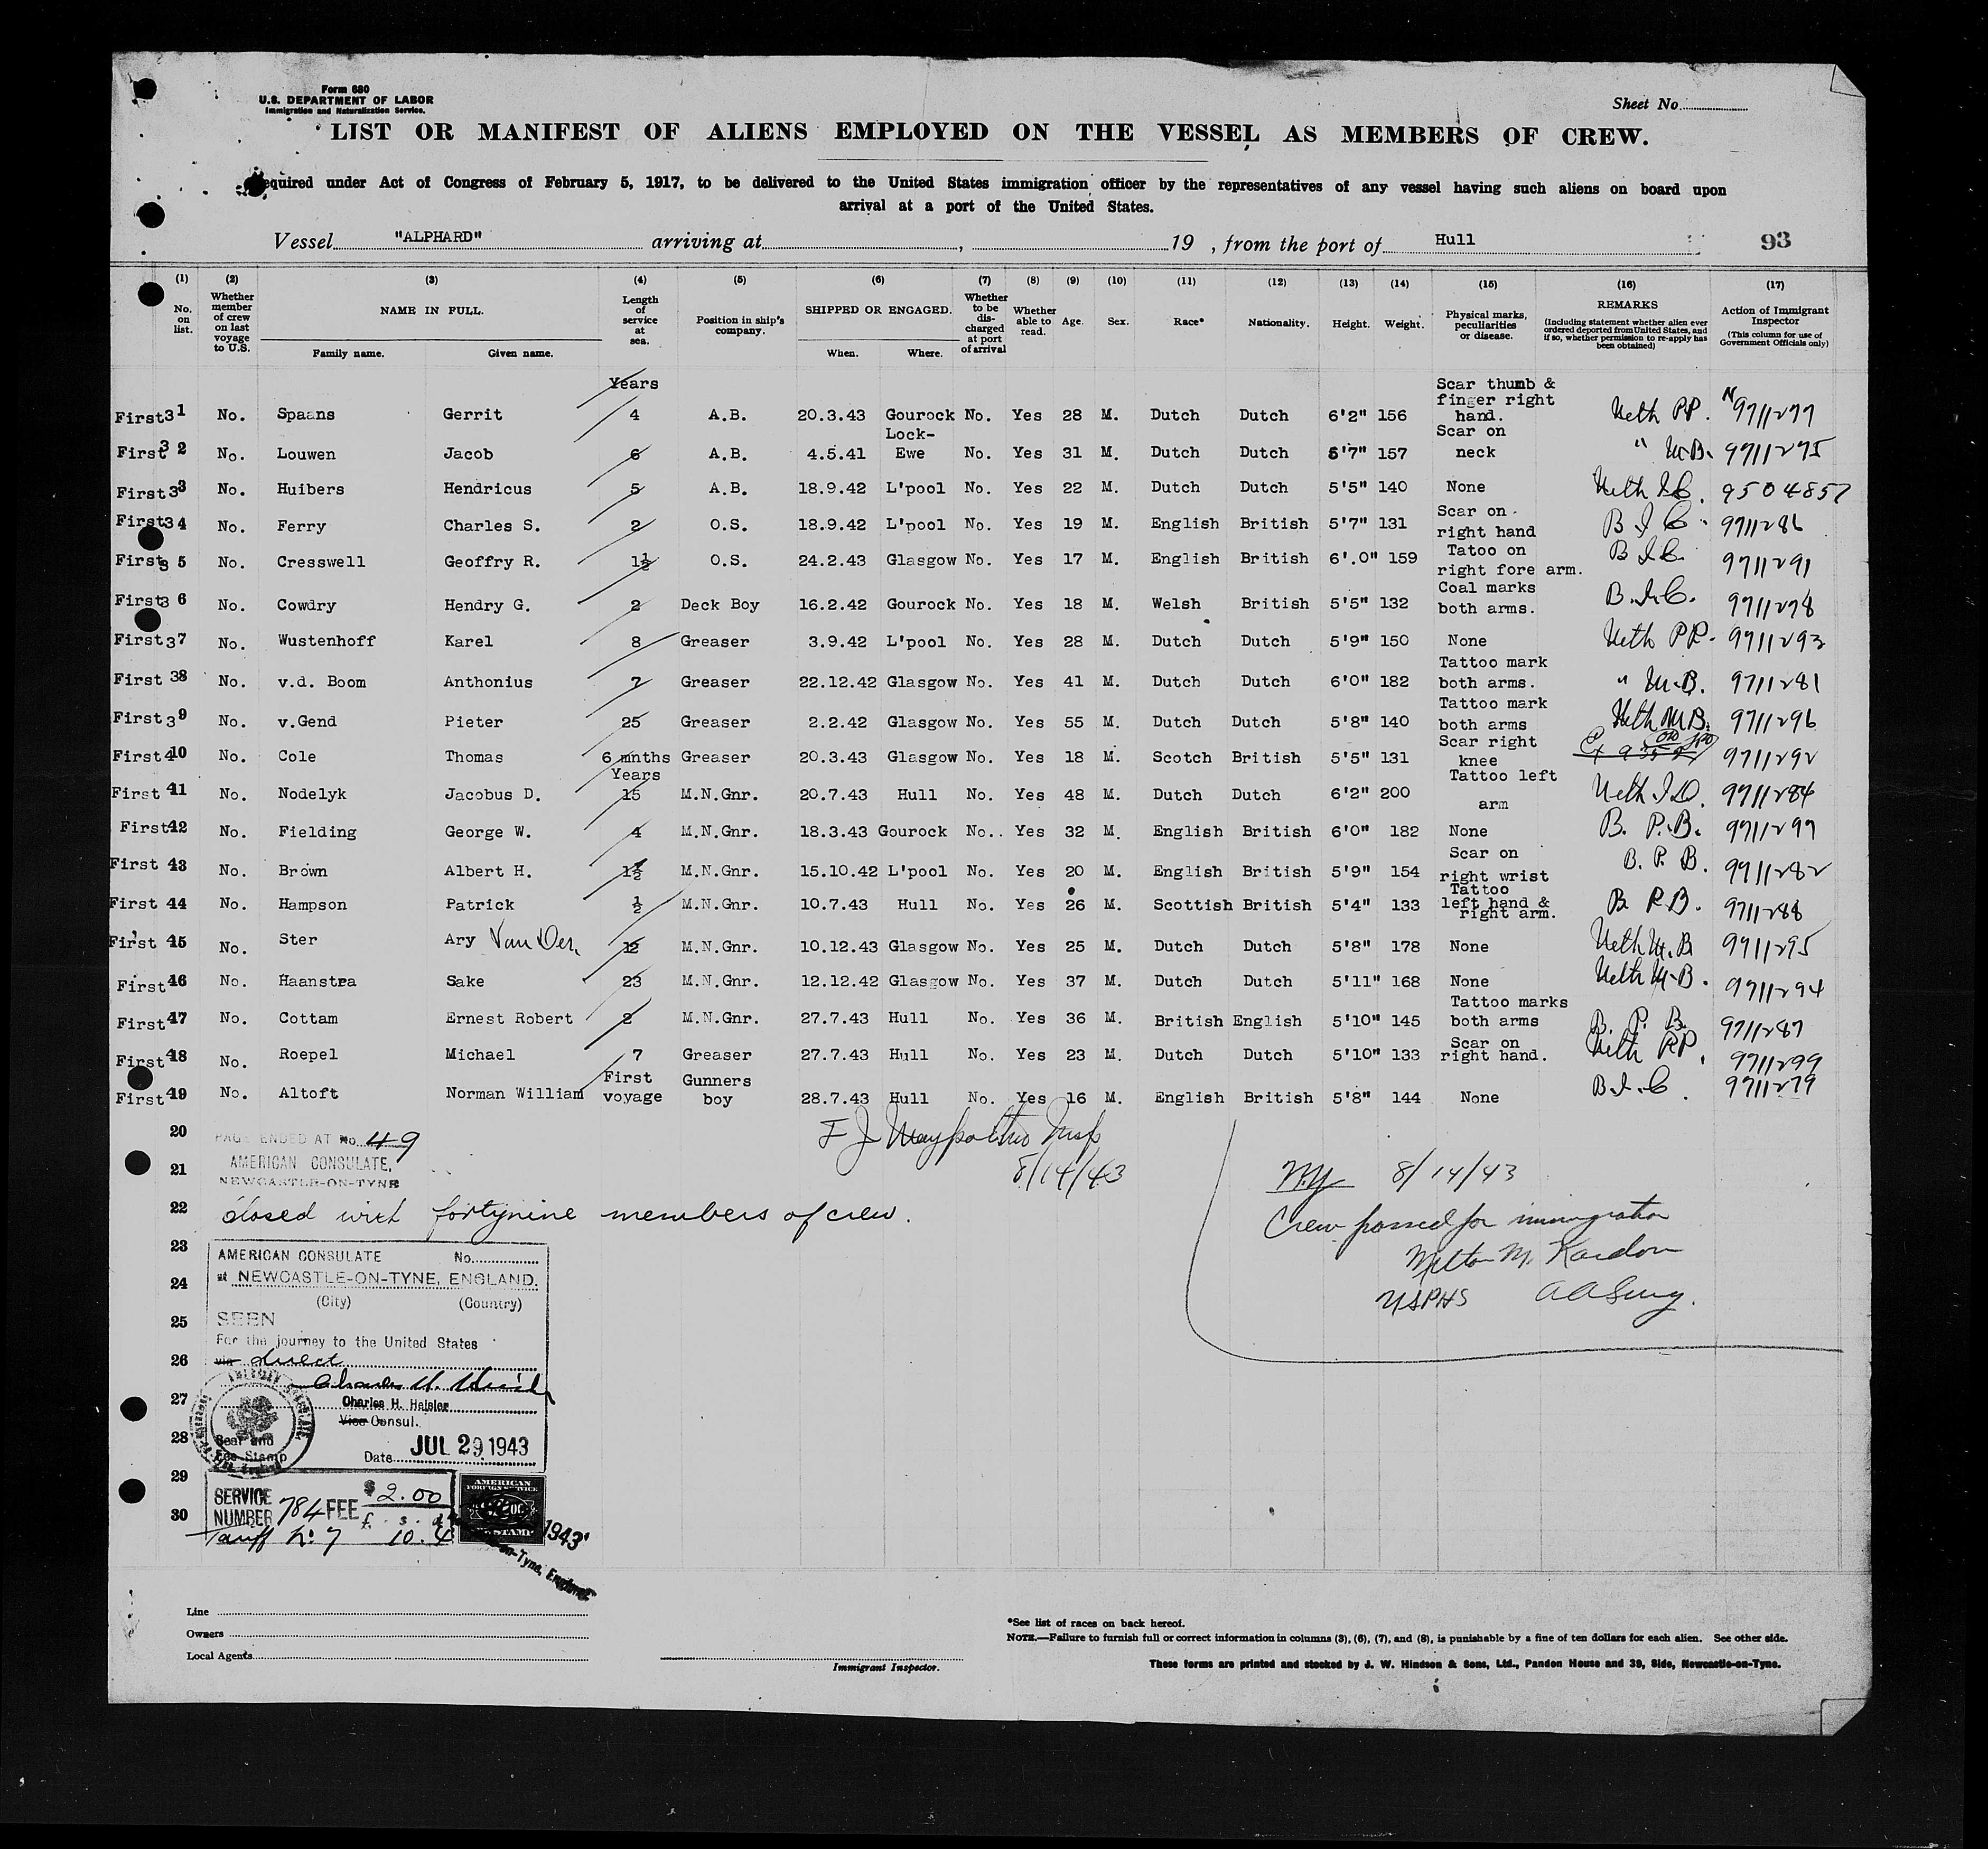 Form 680
U.S. DEPARTMENT OF LABOR
Immigration and Naturalization Service.
Sheet No.
LIST OR MANIFEST OF ALIENS EMPLOYED ON THE VESSEL AS MEMBERS OF CREW.
equired under Act of Congress of February 5, 1917, to be delivered to the United States immigration officer by the representatives of any vessel having such aliens on board upon
arrival at a port of the United States.
Vessel "ALPHARD" arriving at , 19 , from the port of Hull 93
(1) (2) (3) (4) (5) (6) (7) (8) (9) (10) (11) (12) (13) (14) (15) (16) (17)
No. on list. Whether member of crew on last voyage to U.S. NAME IN FULL. Family name. Given name. Length of service at sea. Position in ship's company. SHIPPED OR ENGAGED. When. Where. Whether to be discharged at port of arrival Whether able to read. Age. Sex. Race* Nationality. Height. Weight. Physical marks, peculiarities or disease. REMARKS (Including statement whether alien ever ordered deported from United States, and if so, whether permission to re-apply has been obtained) Action of Immigrant Inspector (This column for use of Government Officials only)
Years
First 31 No. Spaans Gerrit 4 A.B. 20.3.43 Gourock No. Yes 28 M. Dutch Dutch 6'2" 156 Scar thumb & finger right hand. Neth PP. N 9711277
First 32 No. Louwen Jacob 6 A.B. 4.5.41 Lock-Ewe No. Yes 31 M. Dutch Dutch 5'7" 157 Scar on neck " M.B. 9711275
First 33 No. Huibers Hendricus 5 A.B. 18.9.42 L'pool No. Yes 22 M. Dutch Dutch 5'5" 140 None Neth I.C. 9504857
First 34 No. Ferry Charles S. 2 O.S. 18.9.42 L'pool No. Yes 19 M. English British 5'7" 131 Scar on right hand B I C. 9711286
First 35 No. Cresswell Geoffry R. 1½ O.S. 24.2.43 Glasgow No. Yes 17 M. English British 6'.0" 159 Tatoo on right fore arm. B I C. 9711291
First 36 No. Cowdry Hendry G. 2 Deck Boy 16.2.42 Gourock No. Yes 18 M. Welsh British 5'5" 132 Coal marks both arms. B.I.C. 9711278
First 37 No. Wustenhoff Karel 8 Greaser 3.9.42 L'pool No. Yes 28 M. Dutch Dutch 5'9" 150 None Neth PP. 9711293
First 38 No. v.d. Boom Anthonius 7 Greaser 22.12.42 Glasgow No. Yes 41 M. Dutch Dutch 6'0" 182 Tattoo mark both arms. " M.B. 9711281
First 39 No. v.Gend Pieter 25 Greaser 2.2.42 Glasgow No. Yes 55 M. Dutch Dutch 5'8" 140 Tattoo mark both arms Neth M.B. 9711296
First 40 No. Cole Thomas 6 mnths Greaser 20.3.43 Glasgow No. Yes 18 M. Scotch British 5'5" 131 Scar right knee 9711292
Years
First 41 No. Nodelyk Jacobus D. 15 M.N.Gnr. 20.7.43 Hull No. Yes 48 M. Dutch Dutch 6'2" 200 Tattoo left arm Neth I.D. 9711284
First 42 No. Fielding George W. 4 M.N.Gnr. 18.3.43 Gourock No.. Yes 32 M. English British 6'0" 182 None B. P.B. 9711297
First 43 No. Brown Albert H. 1½ M.N.Gnr. 15.10.42 L'pool No. Yes 20 M. English British 5'9" 154 Scar on right wrist B. P. B. 9711282
First 44 No. Hampson Patrick ½ M.N.Gnr. 10.7.43 Hull No. Yes 26 M. Scottish British 5'4" 133 Tattoo left hand & right arm. B P.B. 9711288
First 45 No. Ster Ary Van Der 12 M.N.Gnr. 10.12.43 Glasgow No. Yes 25 M. Dutch Dutch 5'8" 178 None Neth M.B 9711295
First 46 No. Haanstra Sake 23 M.N.Gnr. 12.12.42 Glasgow No. Yes 37 M. Dutch Dutch 5'11" 168 None Neth M.B. 9711294
First 47 No. Cottam Ernest Robert 2 M.N.Gnr. 27.7.43 Hull No. Yes 36 M. British English 5'10" 145 Tattoo marks both arms B. P. B. 9711287
First 48 No. Roepel Michael 7 Greaser 27.7.43 Hull No. Yes 23 M. Dutch Dutch 5'10" 133 Scar on right hand. Neth PP. 9711299
First 49 No. Altoft Norman William First voyage Gunners boy 28.7.43 Hull No. Yes 16 M. English British 5'8" 144 None B.I.C. 9711279
20 PAGE ENDED AT No. 49
21 AMERICAN CONSULATE,
NEWCASTLE-ON-TYNE
8/14/43
22 closed with fortynine members of crew.
N.Y. 8/14/43
Crew passed for immigration
Milton M. Kardon
USPHS AASurg.
23 AMERICAN CONSULATE No.
24 at NEWCASTLE-ON-TYNE, ENGLAND.
(City) (Country)
25 SEEN
For the journey to the United States
26 via direct
27 Charles H. Heisler
Vice Consul.
28 Seal and Fee Stamp Date JUL 29 1943
29 SERVICE NUMBER 784 FEE $ 2.00
30 £. s. d.
Tariff No 7 10. 4
AMERICAN FOREIGN SERVICE
STAMP
1943
on-Tyne, England
Line
Owners
Local Agents
Immigrant Inspector.
*See list of races on back hereof.
NOTE.—Failure to furnish full or correct information in columns (3), (6), (7), and (8), is punishable by a fine of ten dollars for each alien. See other side.
These forms are printed and stocked by J. W. Hindson & Sons, Ltd., Pandon House and 39, Side, Newcastle-on-Tyne.